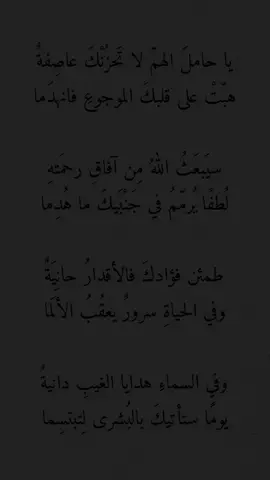 يا حاملَ الهمّ لا تَحزُنْكَ عاصِفةٌ
هبّتْ على قلبكَ الموجوعِ فانهدَما
سيَبعَثُ اللهُ مِن آفاقِ رحمَتهِ
لُطفًا يُرمّمُ في جَنْبَيكَ ما هُدِما
طمئن فؤادكَ فالأقدارُ حانيَةٌ
وفي الحياةِ سرورٌ يعقُبُ الألَما
وفي السماءِ هدايا الغيبِ دانيةُ
يومًا ستأتيكَ بالبُشرى لِتبتسِما